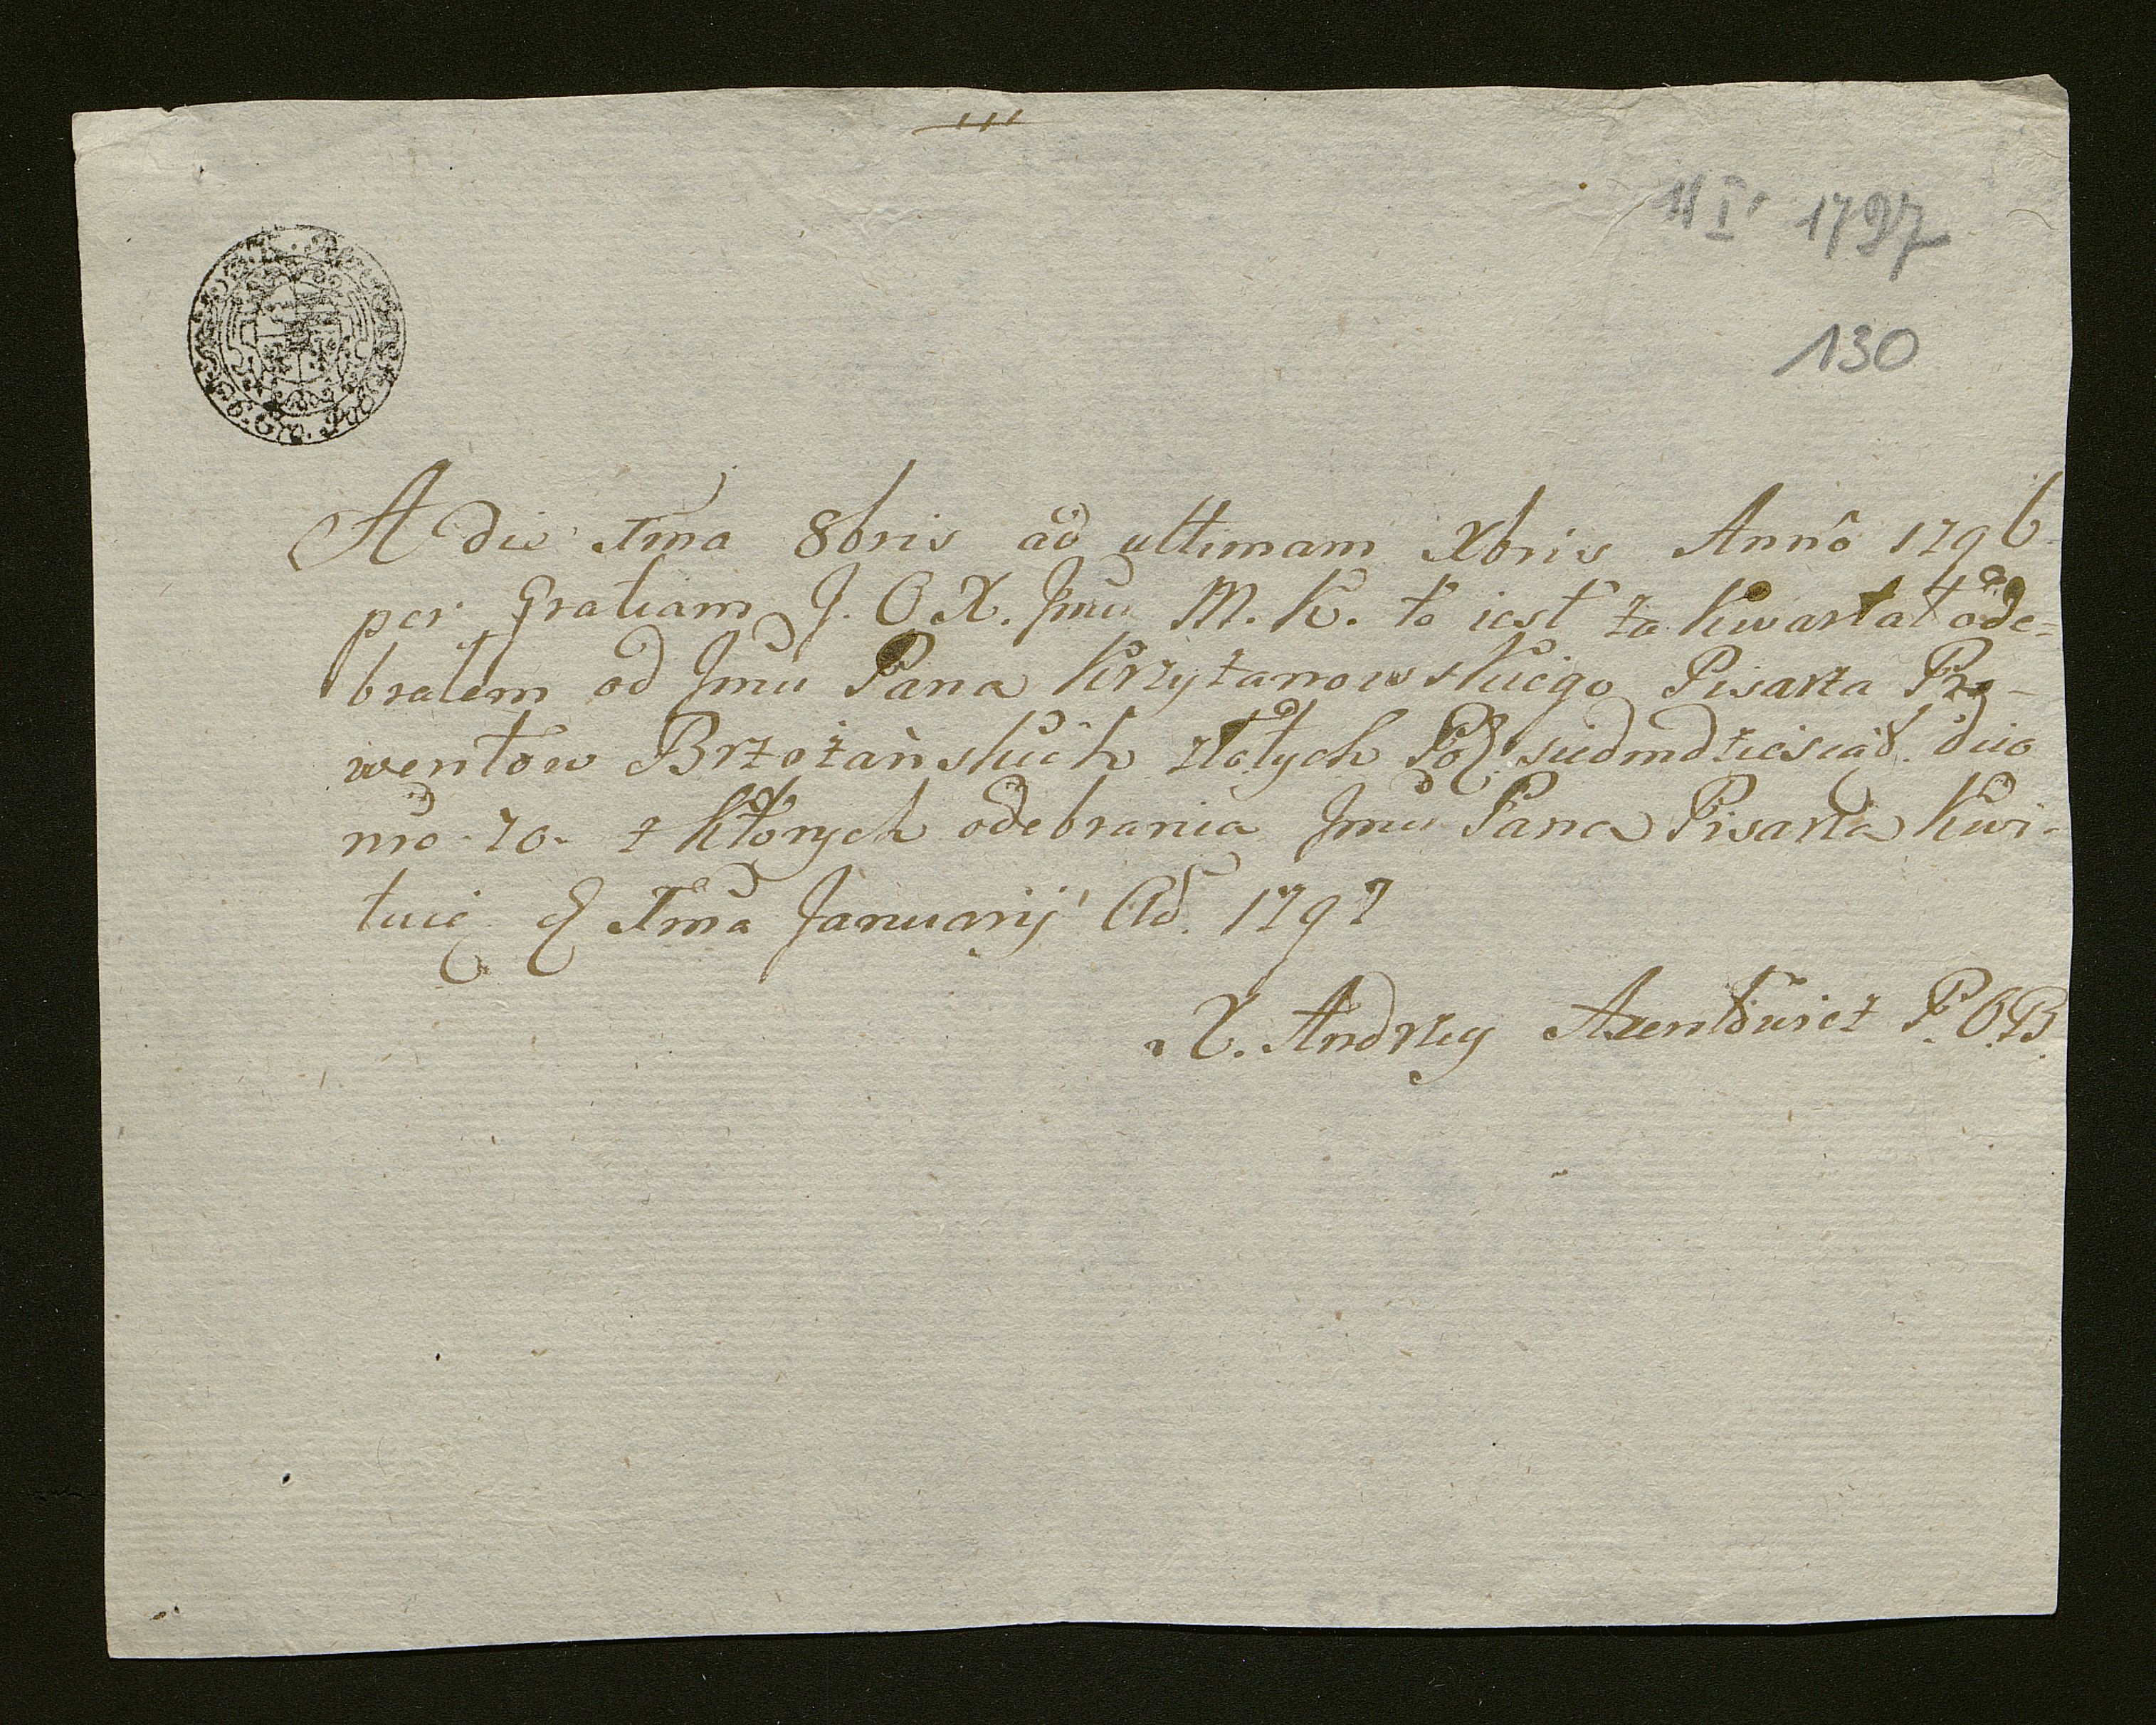 11 I 1797
130
A die 1ma 8bris ad ultimam Xbris Anno 1796
per Gratiam J. O. X. Jmci M. K. to iest za kwartał ode-
brałem od Jmci Pana Krzyżanowskiego Pisarza Pro-
wentow Brzeżańskich złotych Pol. siedmdziesiąt dico
nro 70 z ktorych odebrania Jmci Pana Pisarza kwi-
tuię d 1ma Januarij Ad. 1797
X. Andrzey Axentowicz P. O. B.